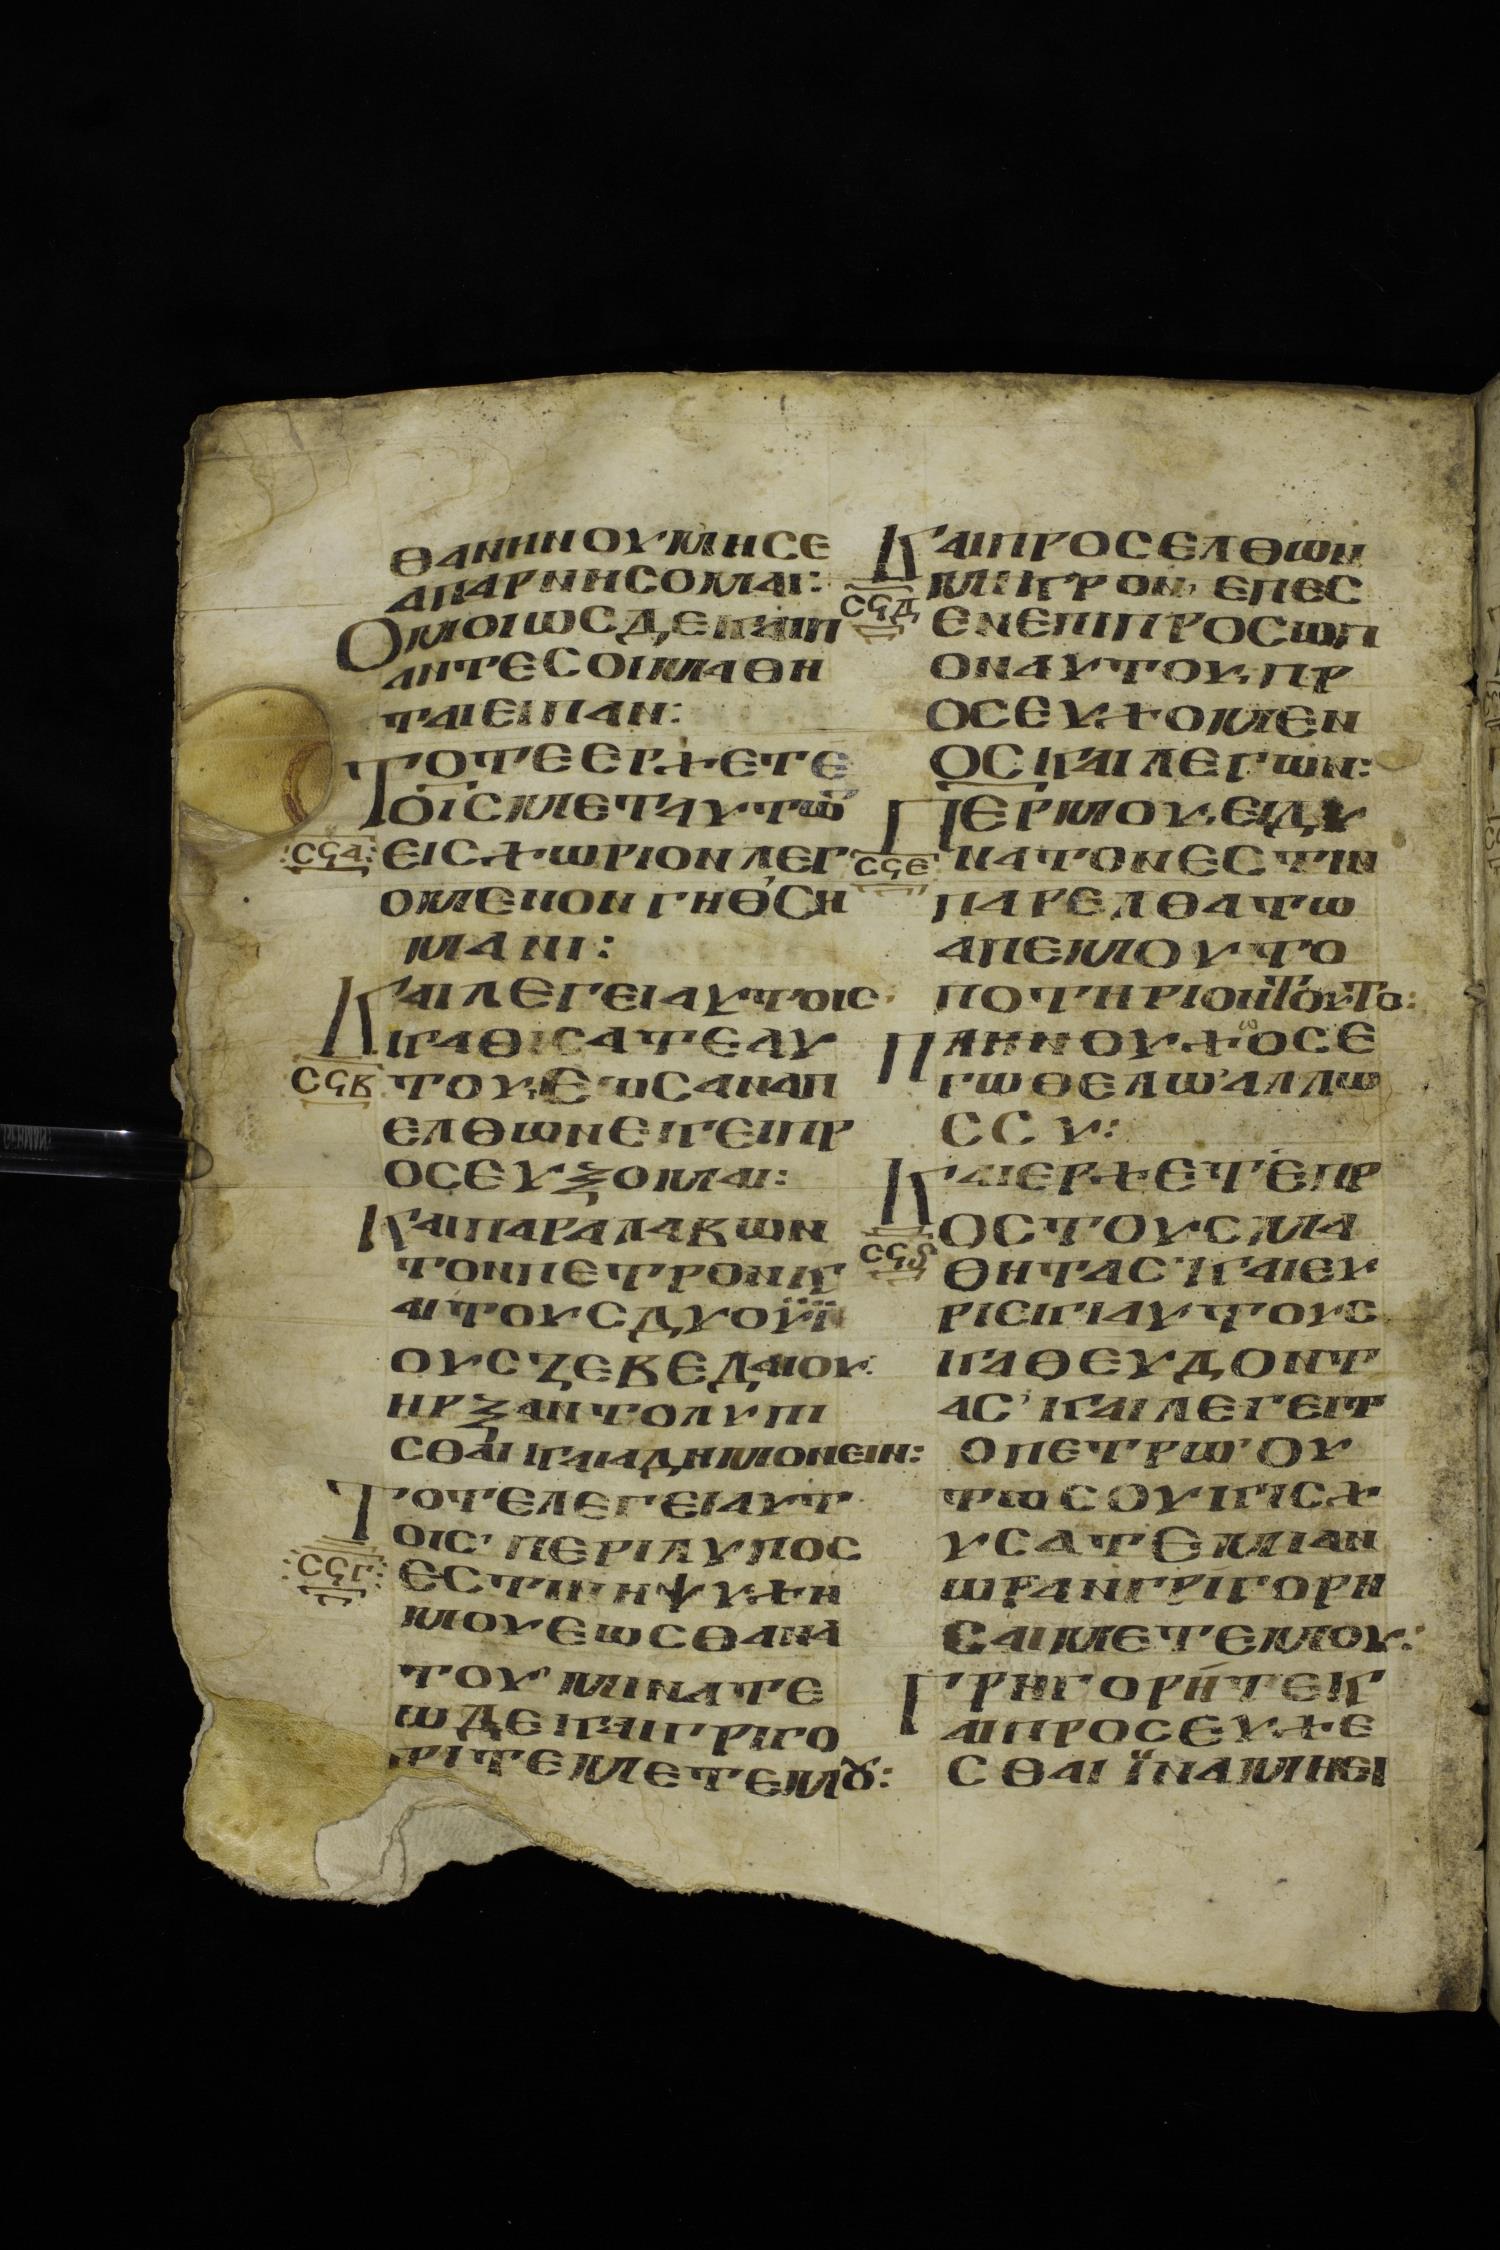 ΘΑΝΗΝΟΥΜΗСΕ
ΑΠΑΡΝΗСΟΜΑΙ:
ΟΜΟΙΩСΔΕΚΑΙΠ
ΑΝΤΕСΟΙΜΑΘΗ
ΤΑΙΕΙΠΑΝ:
ΤΟΤΕΕΡΧΕΤΕ
ΟΙСΜΕΤΑΥΤΩ
СϚΑ:
ΕΙСΧΩΡΙΟΝΛΕΓ
ΟΜΕΝΟΝΓΗΘСΗ
ΜΑΝΙ:
ΚΑΙΛΕΓΕΙΑΥΤΟΙС
ΚΑΘΙСΑΤΕΑΥ
СϚΒ
ΤΟΥ·ΕΩСΑΝΑΠ
ΕΛΘΩΝΕΚΕΙΠΡ
ΟСΕΥΞΟΜΑΙ:
ΚΑΙΠΑΡΑΛΑΒΩΝ
ΤΟΝΠΕΤΡΟΝΚ
ΑΙΤΟΥСΔΥΟΥΪ
ΟΥСΖΕΒΕΔΑΙΟΥ·
ΗΡΞΑΝΤΟΛΥΠΙ
СΘΑΙΚΑΙΑΔΗΜΟΝΕΙΝ:
ΤΟΤΕΛΕΓΕΙΑΥΤ
ΟΙС·ΠΕΡΙΛΥΠΟС
СϚΓ:
ΕСΤΙΝΗΨΥΧΗ
ΜΟΥΕΩСΘΑΝΑ
ΤΟΥ'ΜΙΝΑΤΕ
ΩΔΕΚΑΙΓΡΙΓΟ
ΡΙΤΕΜΕΤΕΜȢ:
ΚΑΙΠΡΟСΕΛΘΩΝ
ΜΙΚΡΟΝ·ΕΠΕС
СϚΔ
ΕΝΕΠΙΠΡΟСΩΠ
ΟΝΑΥΤΟΥ·ΠΡ
ΟСΕΥΧΟΜΕΝ
ΟСΚΑΙΛΕΓΩΝ:
ΠΕΡΜΟΥ·ΕΙΔΥ
СϚΕ
ΝΑΤΟΝΕСΤΙΝ
ΠΑΡΕΛΘΑΤΩ
ΑΠΕΜΟΥΤΟ
ΠΟΤΗΡΙΟΝΤΟΥΤΟ:
ΠΛΗΝΟΥΧΟСΕ
ΓΩΘΕΛΩ'ΑΛΛΩ
ССΥ:
ΚΑΙΕΡΧΕΤΕΠΡ
ΟСΤΟΥСΜΑ
СϚϚ
ΘΗΤΑС'ΚΑΙΕΥ
ΡΙСΚΙΑΥΤΟΥС
ΚΑΘΕΥΔΟΝΤ
ΑС'ΚΑΙΛΕΓΕΙΤ
ΟΠΕΤΡΩ'ΟΥ
ΤΩСΟΥΚΙСΧ
ΥСΑΤΕΜΙΑΝ
ΩΡΑΝΓΡΙΓΟΡΗ
СΑΙΜΕΤΕΜΟΥ:
ΓΡΗΓΟΡΗΤΕΚ
ΑΙΠΡΟСΕΥΧΕ
СΘΑΙΪΝΑΜΗΕΙ